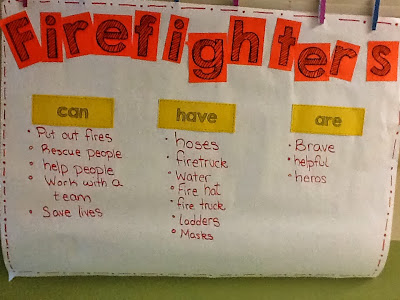 Firefighters
can
• Put out fires
• Rescue people
• help people
• Work with a
team
• Save lives
have
• hoses
• firetruck
• Water
• Fire hat
• fire truck
• ladders
• Masks
are
• Brave
• helpful
• heros